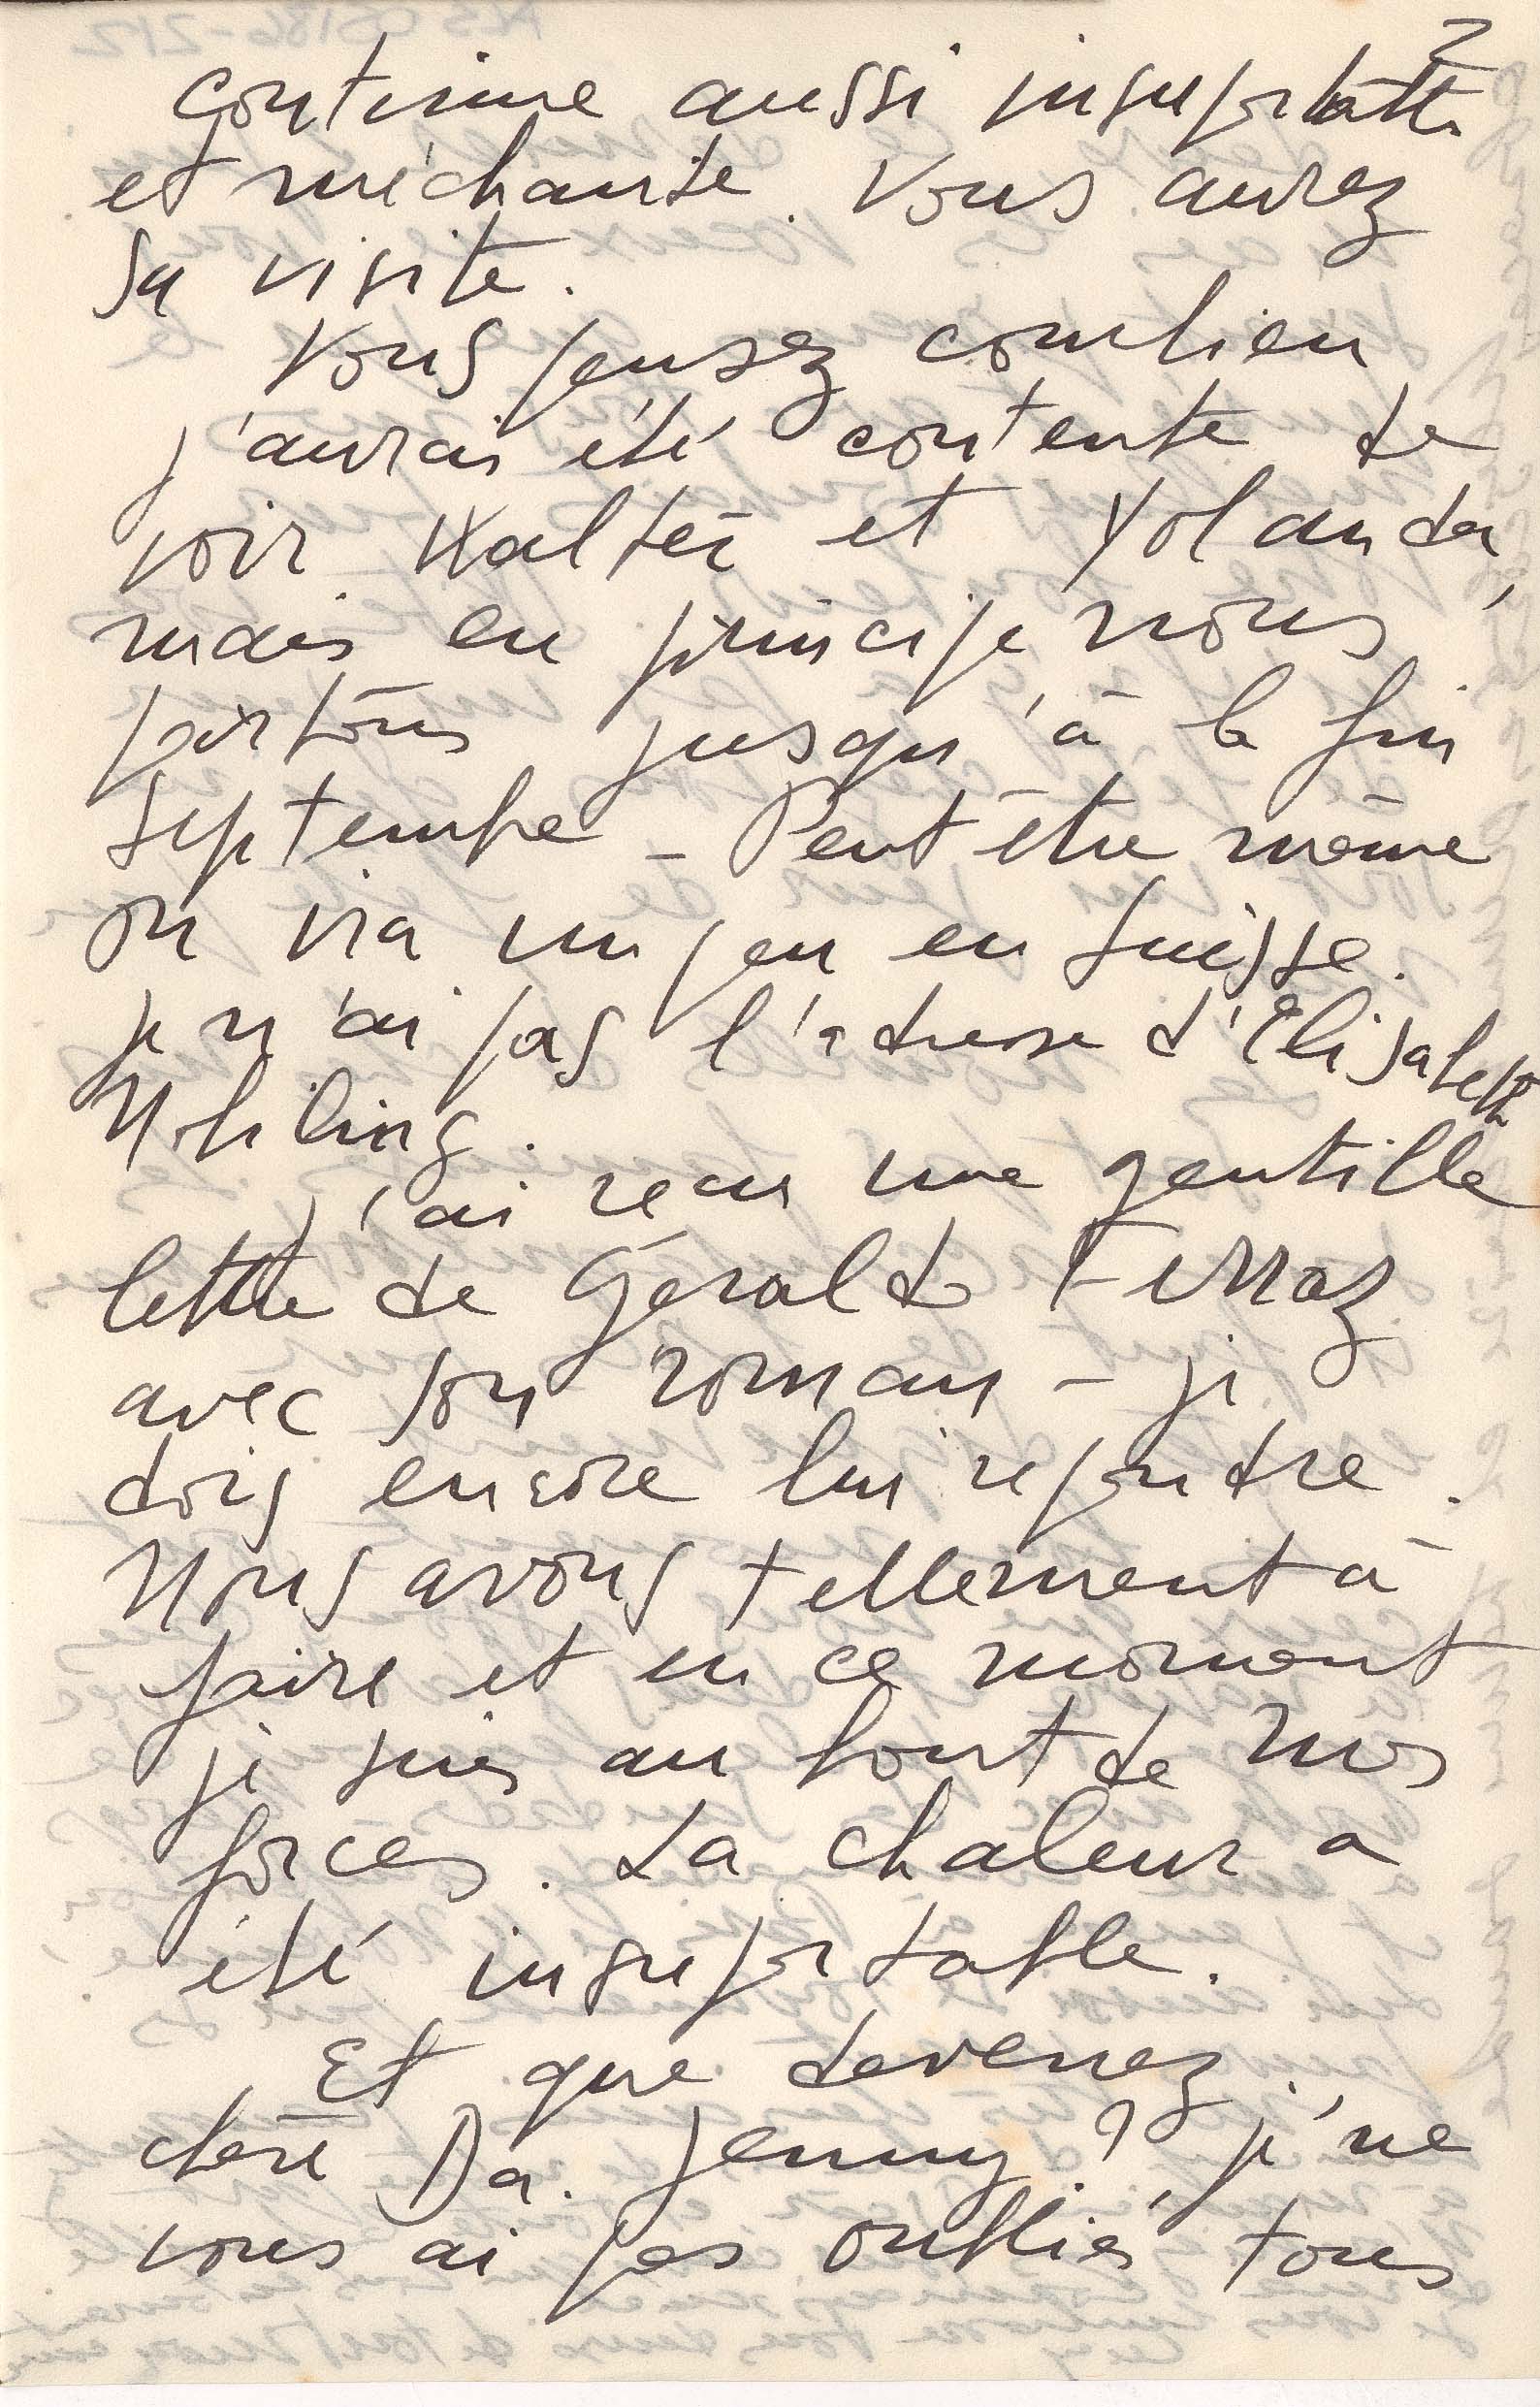 2
continue aussi insuportable
et méchante. Vous aurez
sa visite.
Vous pensez combien
j'aurai été contente de
voir Walter et Yolanda,
mais en principe nous
partons jusqu'à la fin
septembre – Peut être même
on ira un peu en Suisse.
je n'ai pas l'adresse d'Elisabeth
Nobiling.
j'ai reçu une gentille
lettre de Géraldo Ferraz
avec son roman – je
dois encore lui repondre.
Nous avons tellement à
faire et en ce moment
je suis au bout de mes
forces. La chaleur a
été insuportable.
Et que devenez
chère Da. Jenny? je ne
vous ai pas oubliés, tous